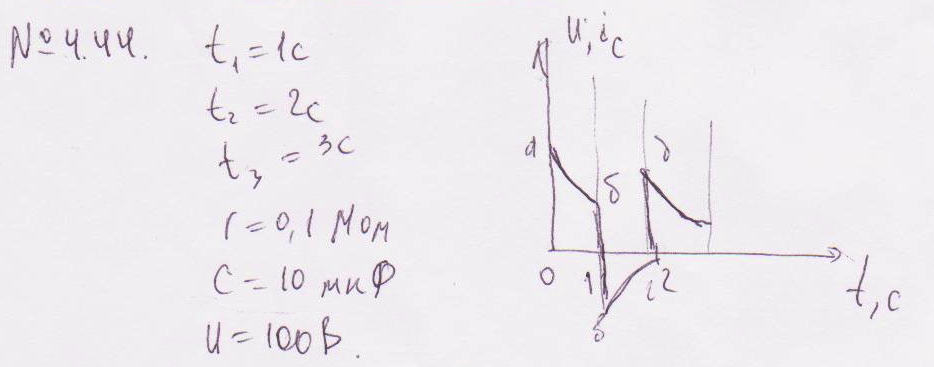 № 4.44.
t₁ = 1с
t₂ = 2с
t₃ = 3с
r = 0,1 Мом
C = 10 мкФ
U = 100В.
U; i_c
а
б
д
0
1
2
t, c